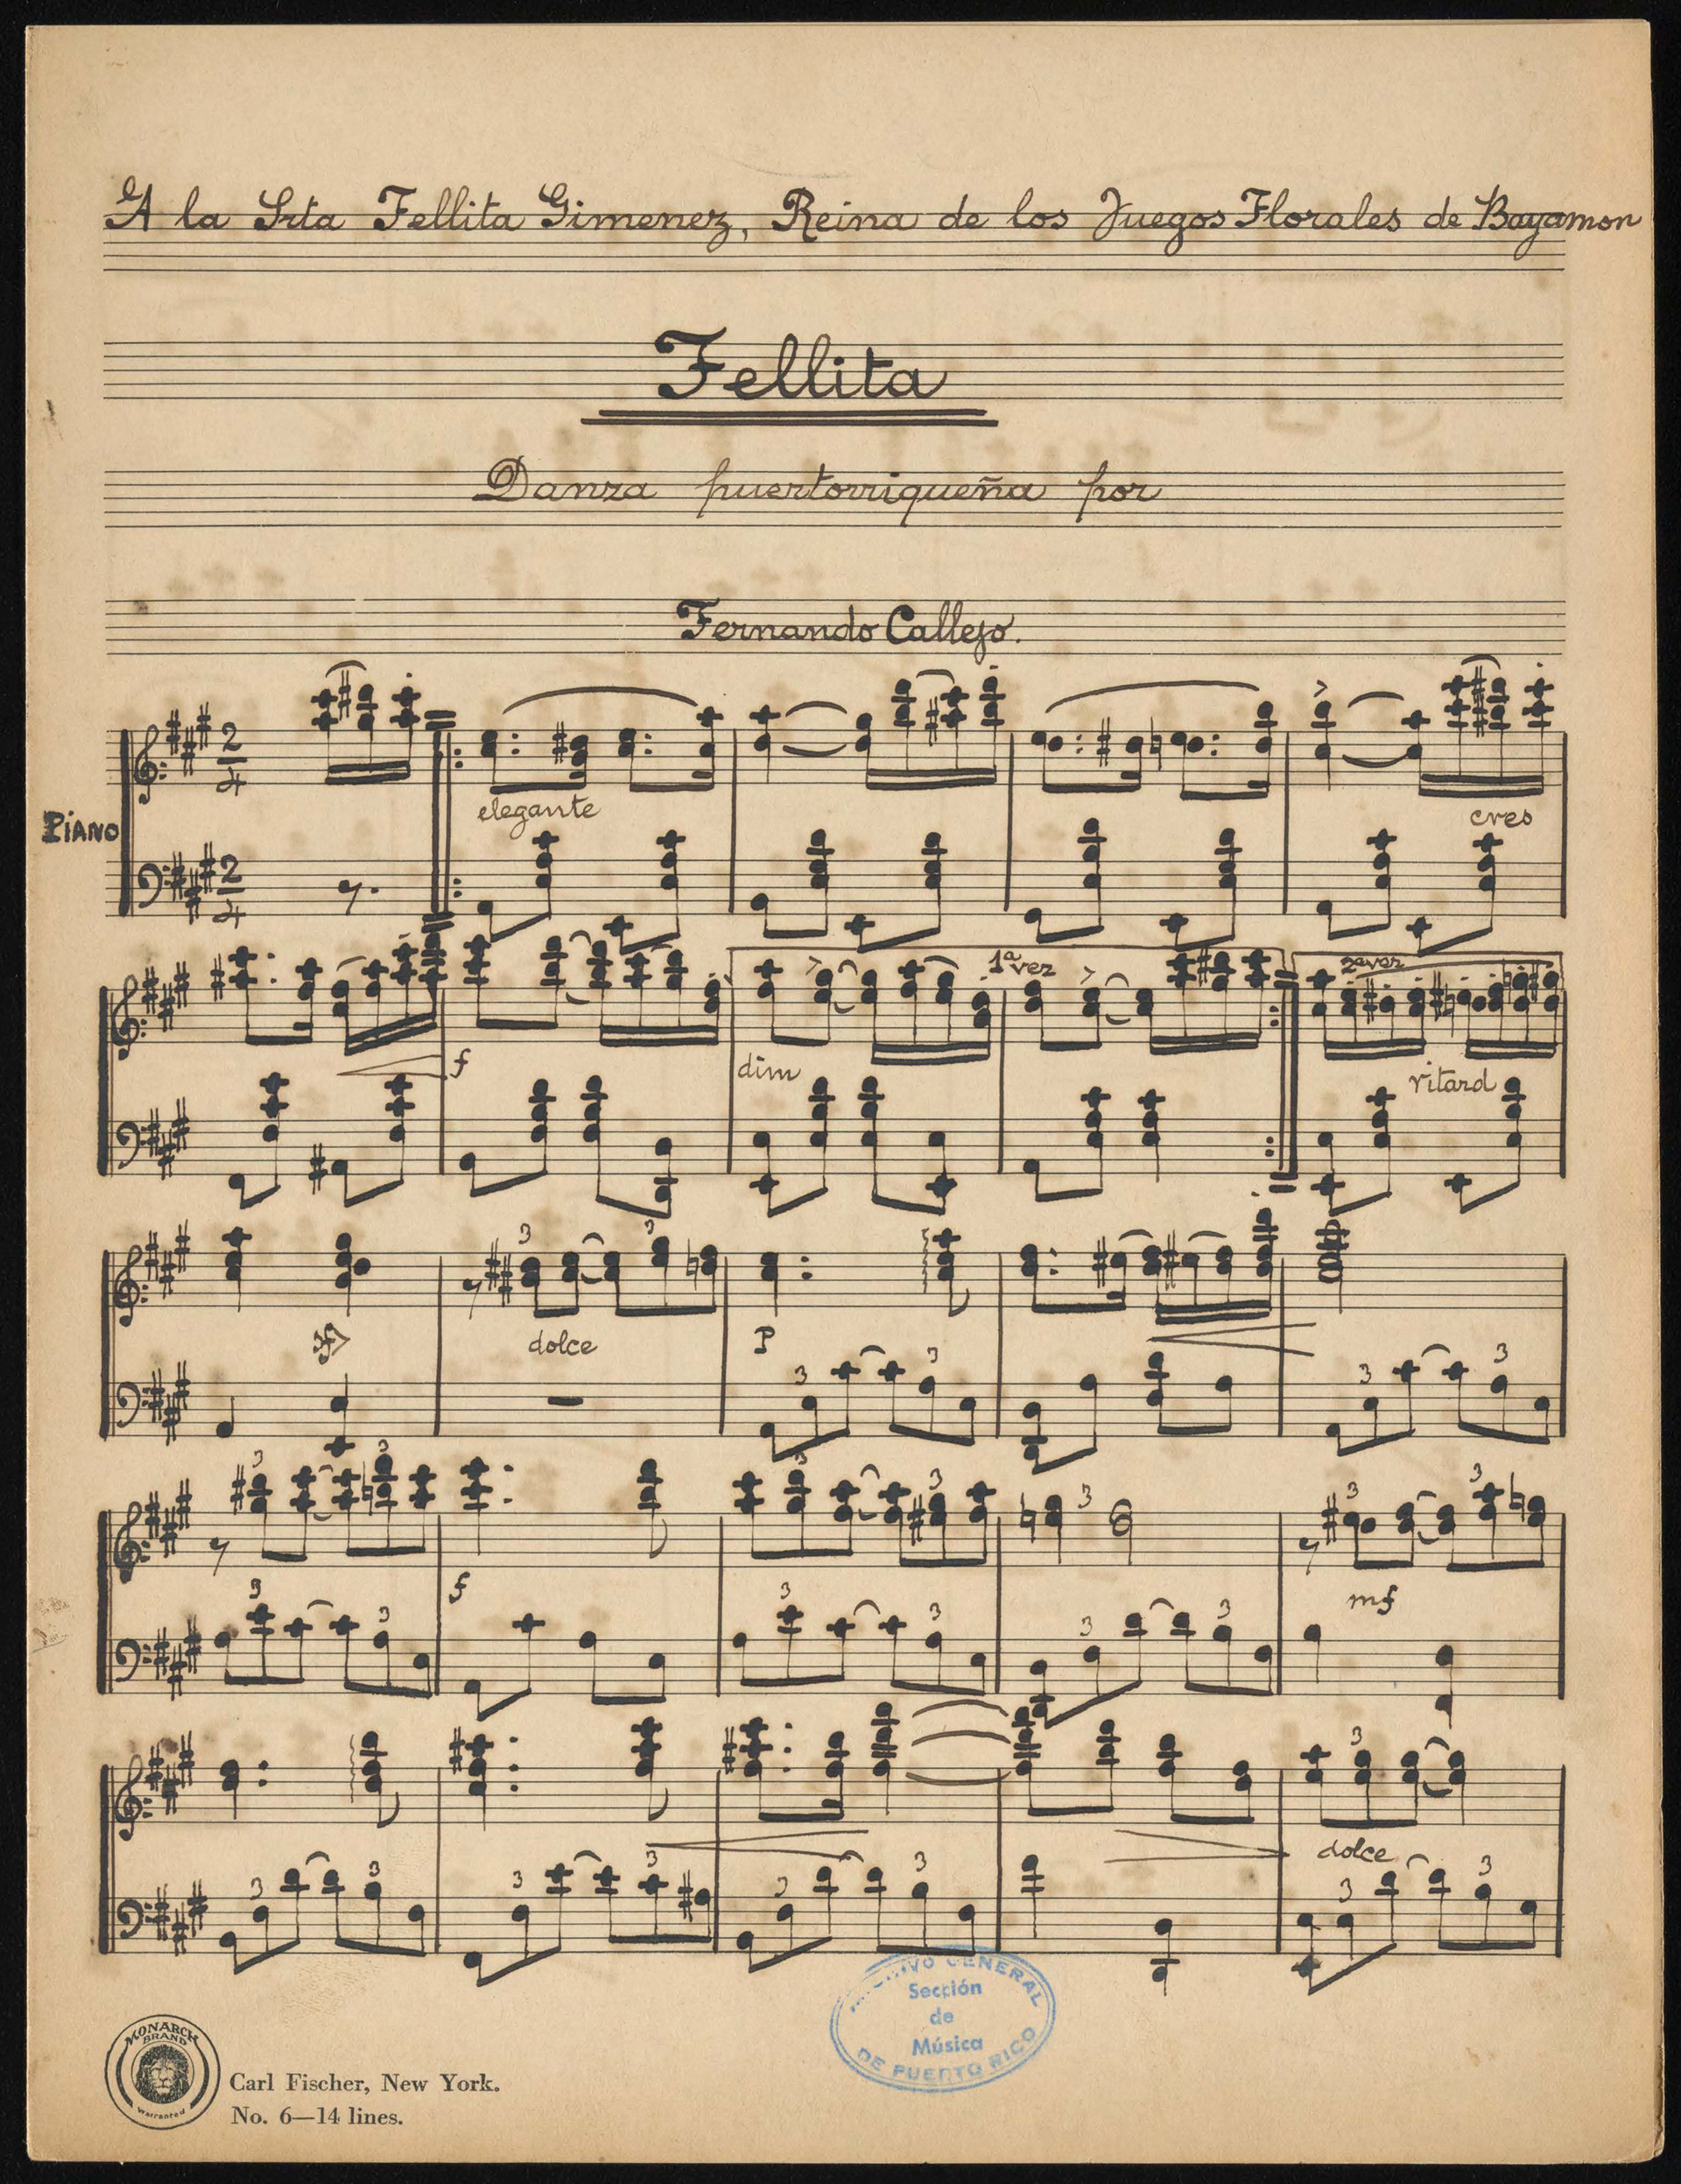 A la Srta Fellita Gimenez, Reina de los Juegos Florales de Bayamon
Fellita
Danza puertorriqueña por
Fernando Callejo.
PiANO
2
4
elegante
cres
2
4
1ª vez
2ª vez
f
dim
ritard
3
3
sf>
dolce
P
3
3
3
3
3
3
3
3
3
f
mf
3
3
3
3
3
3
3
3
3
dolce
3
3
3
3
3
3
3
3
ARCHIVO GENERAL
Sección
de
Música
DE PUERTO RICO
MONARCH
BRAND
Warranted
Carl Fischer, New York.
No. 6—14 lines.